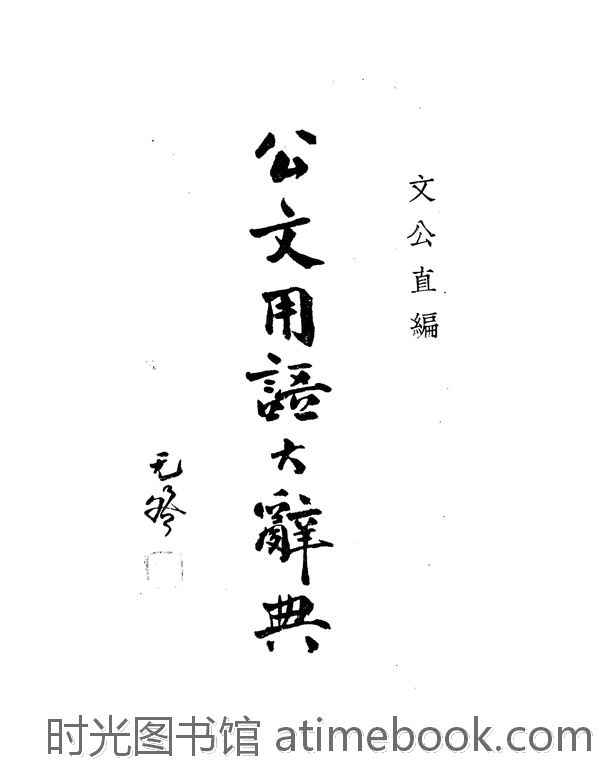 文公直編
公文用語大辭典
时光图书馆 atimebook.com